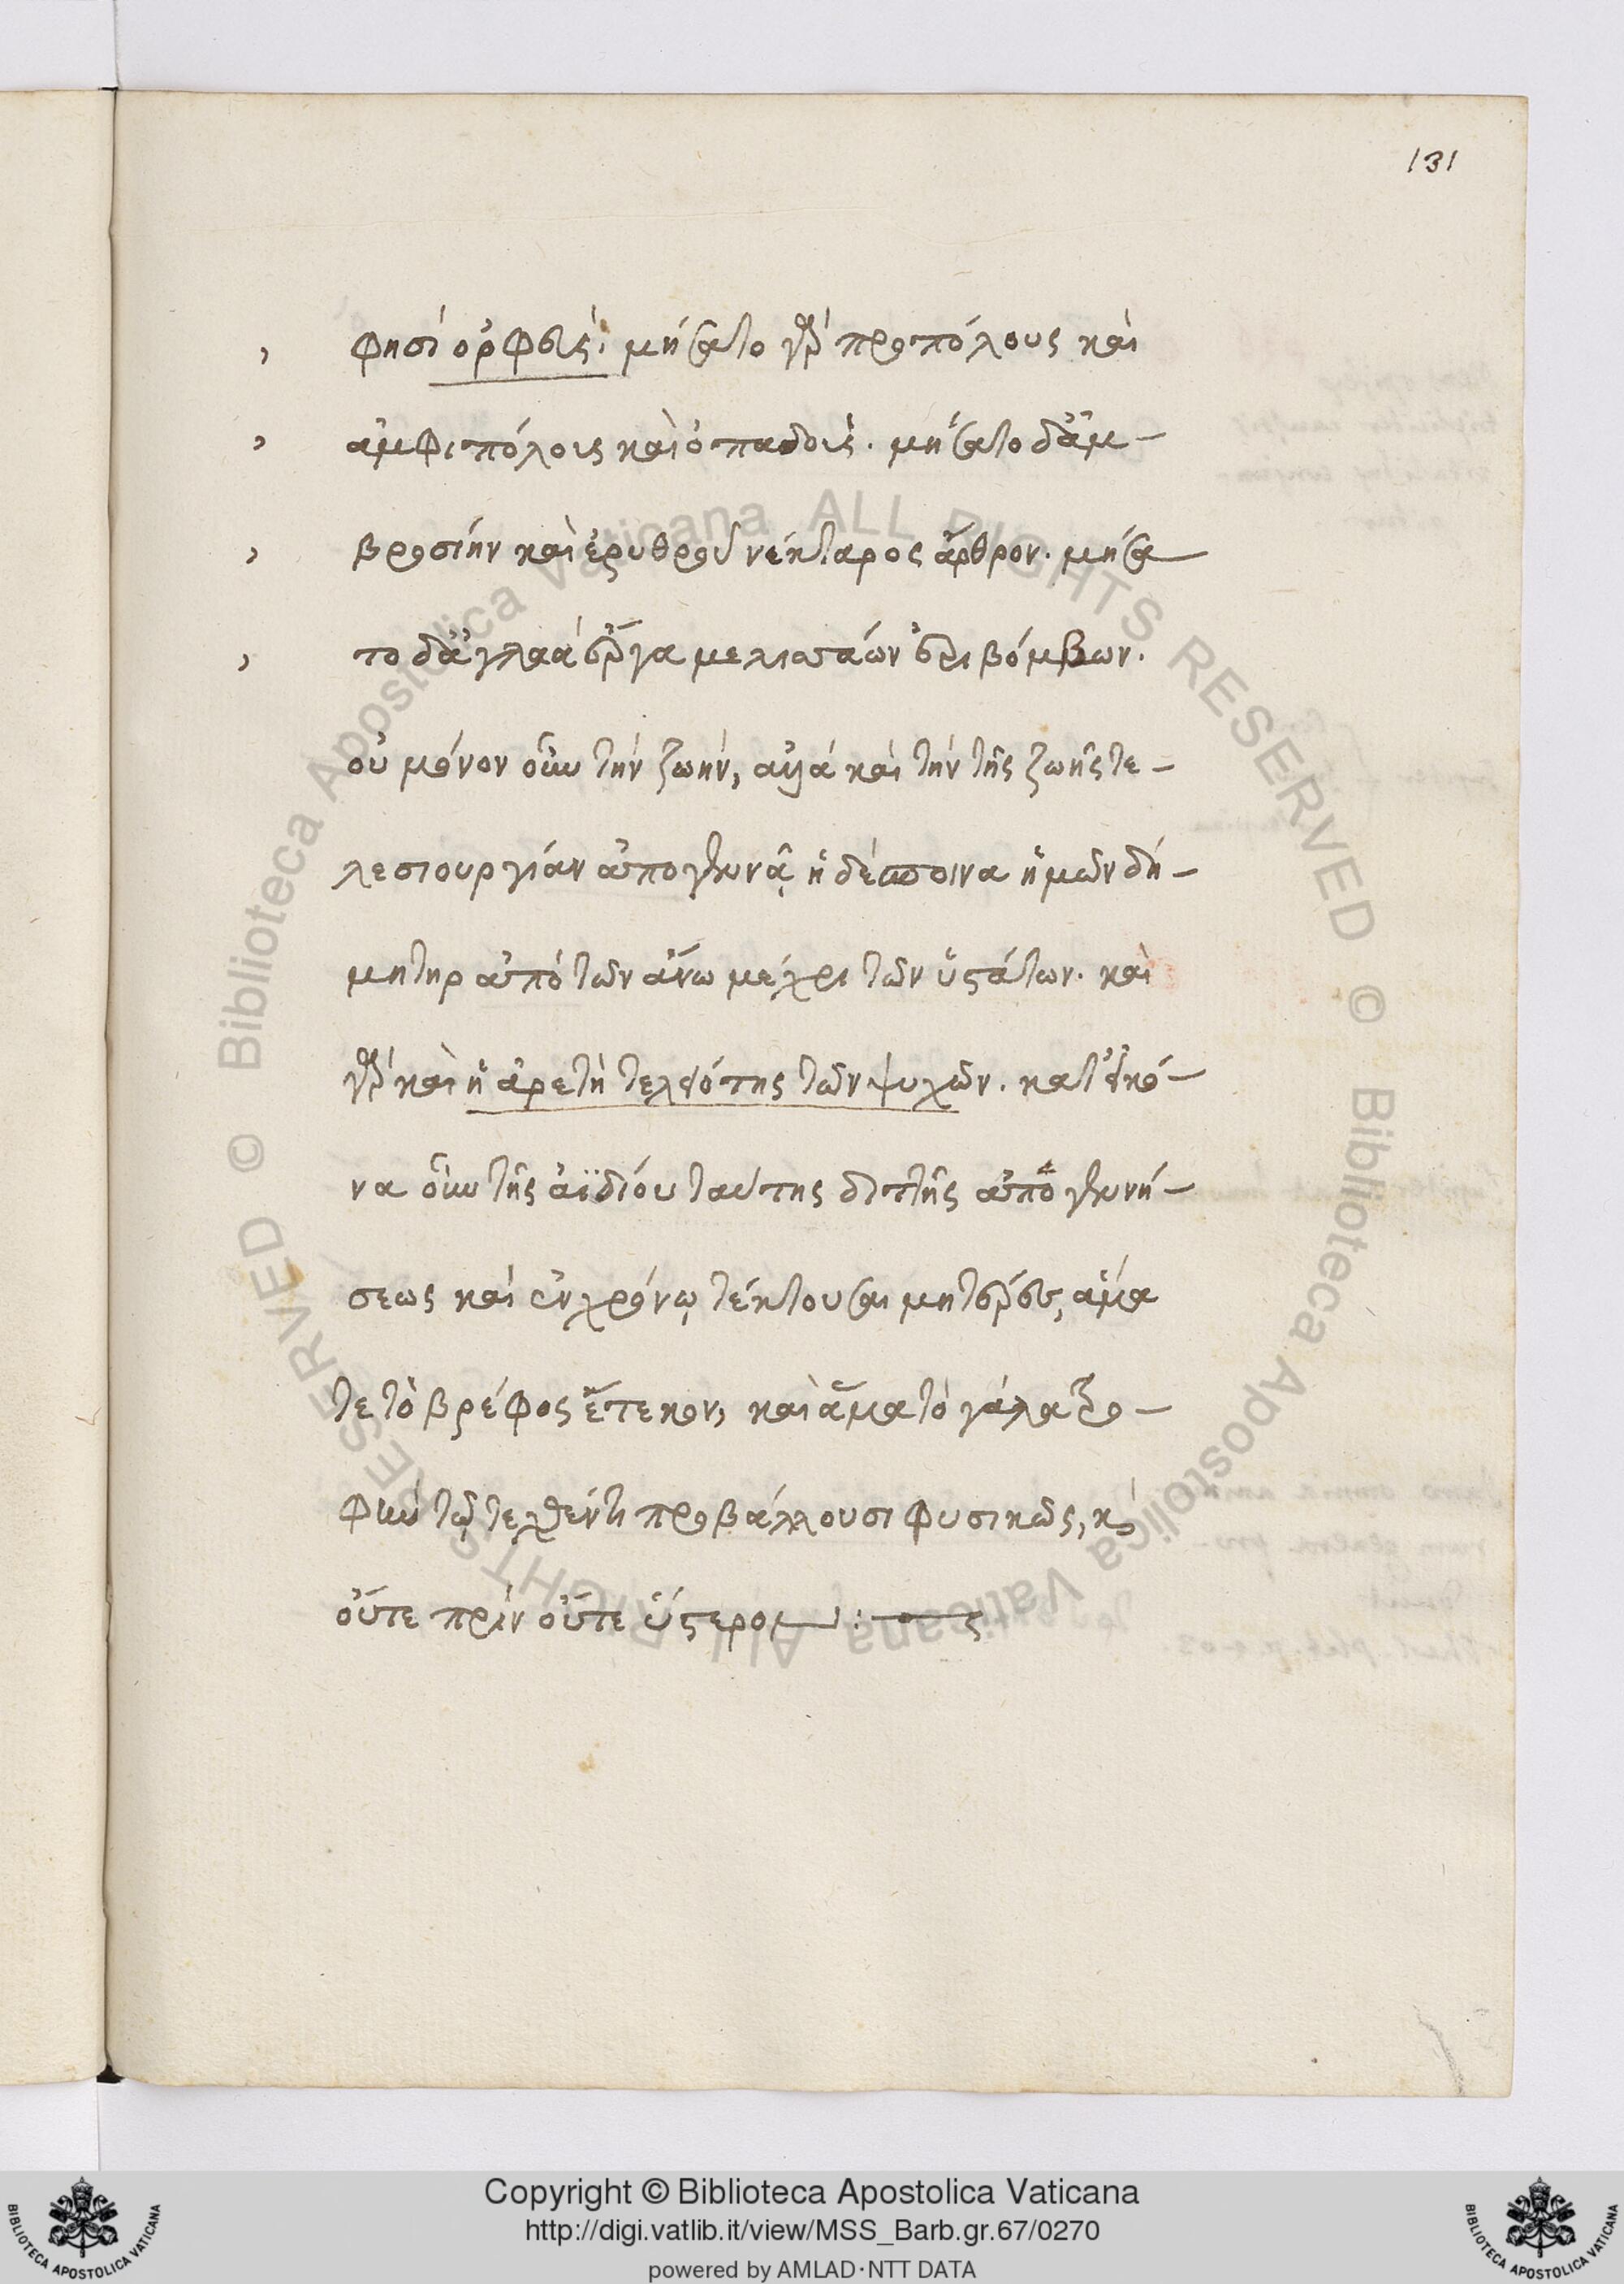 131
φησὶ ὀρφεύς· μήσατο γὰρ προπόλους καὶ
ἀμφιπόλοις καὶ ὀπαδοίς. μήσατο δἀμ-
βροσίην καὶ ἐρυθροῦ νέκταρος ἄρθρον. μήσα
το δἀγλαὰ ἔργα μελισσάων ἐριβόμβων.
οὐ μόνον οὖν τὴν ζωὴν, ἀλλὰ καὶ τὴν τῆς ζωῆς τε-
λεσιουργίαν ἀπογεννᾷ ἡ δέσποινα ἡμῶν δη-
μητηρ ἀπὸ τῶν ἄνω μέχρι τῶν ὑστάτων. καὶ
γὰρ καὶ ἡ ἀρετὴ τελειότης τῶν ψυχῶν. κατ' εἰκό-
να οὖν τῆς ἀϊδίου ταύτης διττῆς ἀπογεννή-
σεως καὶ ἐν χρόνῳ τέκτουσαι μητέρες, ἅμα
τε τὸ βρέφος ἔτεκον, καὶ ἅμα τὸ γάλα τρο-
φὴν τῷ τεχθέντι προβάλλουσι φυσικῶς, καὶ
οὔτε πρὶν οὔτε ὕστερον :
Copyright © Biblioteca Apostolica Vaticana
http://digi.vatlib.it/view/MSS_Barb.gr.67/0270
powered by AMLAD·NTT DATA
BIBLIOTECA APOSTOLICA VATICANA
BIBLIOTECA APOSTOLICA VATICANA
© Biblioteca Apostolica Vaticana ALL RIGHTS RESERVED
© Biblioteca Apostolica Vaticana ALL RIGHTS RESERVED